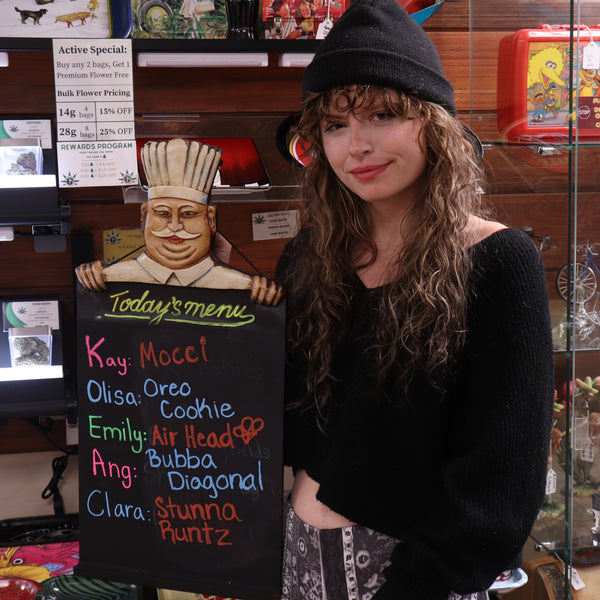 Active Special:
Buy any 2 bags, Get 1
Premium Flower Free
Bulk Flower Pricing
14g 4 bags 15% OFF
28g 8 bags 25% OFF
REWARDS PROGRAM
Today's menu
Kay: Mocci
Olisa: Oreo
Cookie
Emily: Air Head
Ang: Bubba
Diagonal
Clara: Stunna
Runtz
STOP